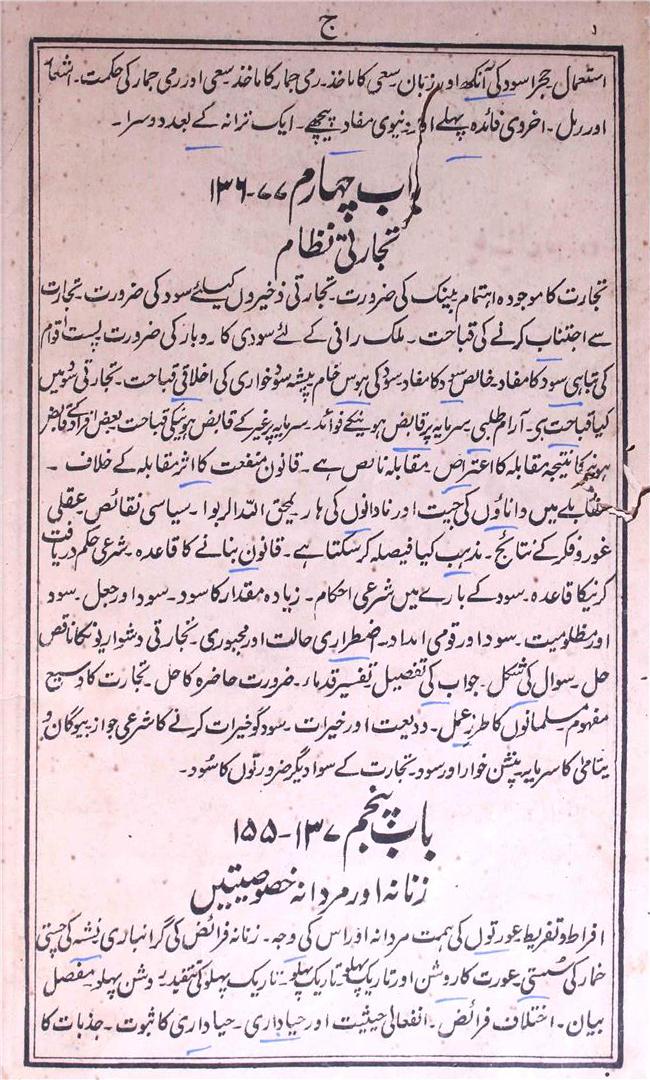 ج
استعمال۔ حجر اسود کی آنکھ اور زبان۔ سعی کا ماخذ۔ رمی جمار کا ماخذ سعی اور رمی جمار کی حکمت۔
اور رمل۔ اخروی فائدہ پہلے اور دنیوی مفاد پیچھے۔ ایک ترانہ کے بعد دوسرا۔
باب چہارم ۷۷-۱۳۶
تجارتی نظام
تجارت کا موجودہ اہتمام بینک کی ضرورت۔ تجارتی ذخیروں کیلئے سود کی ضرورت۔ تجارت
سے اجتناب کرنے کی قباحت۔ ملک رانی کے لئے سودی کاروبار کی ضرورت پست اقوام
کی تباہی سود کا مفاد۔ خالص سود کا مفاد سود کی ہوس خام پیشہ سود خواری کی اخلاقی قباحت۔ تجارتی سود میں
کیا قباحت ہی۔ آرام طلبی۔ سرمایہ پر قابض ہونیکے فوائد۔ سرمایہ پر غیر کے قابض ہونیکی قباحت بعض افراد کے قابض
ہونیکا نتیجہ مقابلہ کا اعتراض۔ مقابلہ ناقص ہے۔ قانون منفعت کا اثر مقابلہ کے خلاف۔
مقابلے میں داناؤں کی جیت اور نادانوں کی ہار۔ یمحق اللہ الربوا۔ سیاسی نقائص عقلی
غور و فکر کے نتائج۔ مذہب کیا فیصلہ کر سکتا ہے۔ قانون بنانے کا قاعدہ۔ شرعی حکم دریافت
کرنیکا قاعدہ۔ سود کے بارے میں شرعی احکام۔ زیادہ مقدار کا سود۔ سود اور جعل۔ سود
اور مظلومیت۔ سود اور قومی امداد۔ اضطراری حالت اور مجبوری۔ تجارتی دشواریونکا ناقص
حل۔ سوال کی شکل۔ جواب کی تفصیل۔ تفسیر قدماء۔ ضرورت حاضرہ کا حل۔ تجارت کا وسیع
مفہوم۔ مسلمانوں کا طرز عمل۔ ودیعت اور خیرات۔ سود کو خیرات کرنے کا شرعی جواز بیوگان و
یتامیٰ کا سرمایہ۔ پنشن خوار اور سود۔ تجارت کے سوا دیگر ضرورتوں کا سود۔
باب پنجم ۱۳۷-۱۵۵
زنانہ اور مردانہ خصوصیتیں
افراط و تفریط۔ عورتوں کی ہمت مردانہ اور اس کی وجہ۔ زنانہ فرائض کی گرانباری نشہ کی چستی
خمار کی سستی۔ عورت کا روشن اور تاریک پہلو۔ تاریک پہلو۔ تاریک پہلو کی تنقید۔ روشن پہلو۔ مفصل
بیان۔ اختلاف فرائض۔ انفعالی حیثیت اور حیاداری۔ حیاداری کا ثبوت۔ جذبات کا